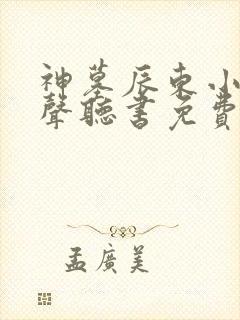 神墓辰東小
聲聽書免費
孟廣美